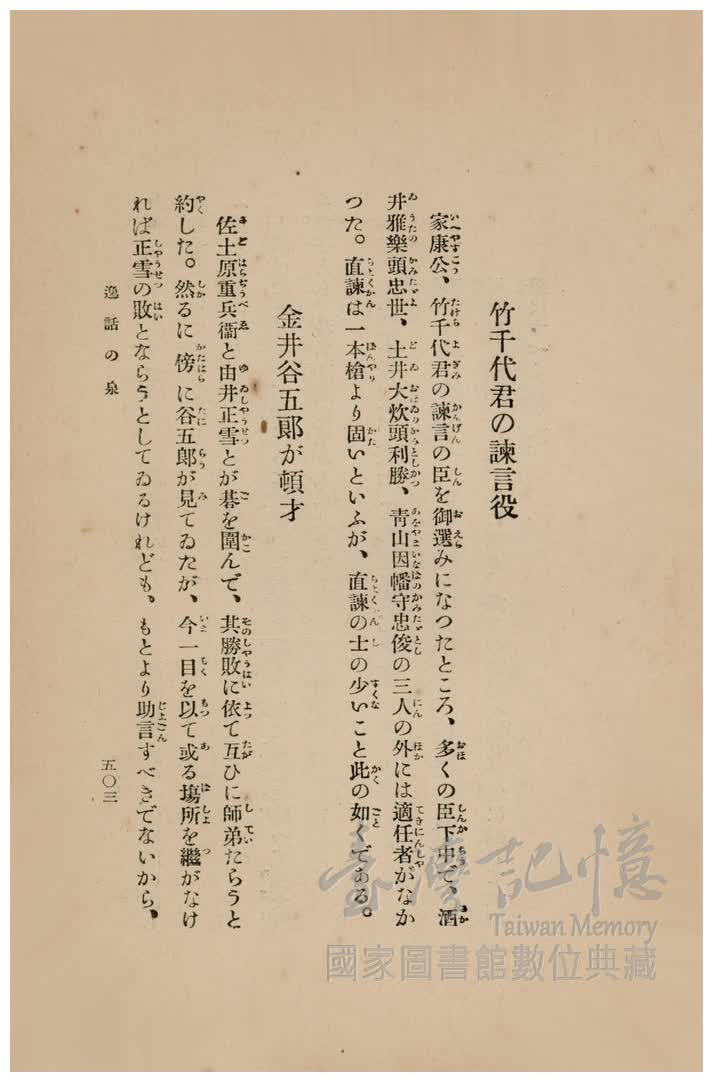 竹千代君の諫言役
家康公、竹千代君の諫言の臣を御選みになつたところ、多くの臣下中で、酒
井雅樂頭忠世、土井大炊頭利勝、靑山因幡守忠俊の三人の外には適任者がなか
つた。直諫は一本槍より固いといふが、直諫の士の少いこと此の如くである。
金井谷五郞が頓才
佐土原重兵衞と由井正雪とが碁を圍んで、其勝敗に依て互ひに師弟たらうと
約した。然るに傍に谷五郞が見てゐたが、今一目を以て或る塲所を繼がなけ
れば正雪の敗とならうとしてゐるけれども、もとより助言すべきでないから、
逸話の泉
五〇三
臺灣記憶
Taiwan Memory
國家圖書館數位典藏